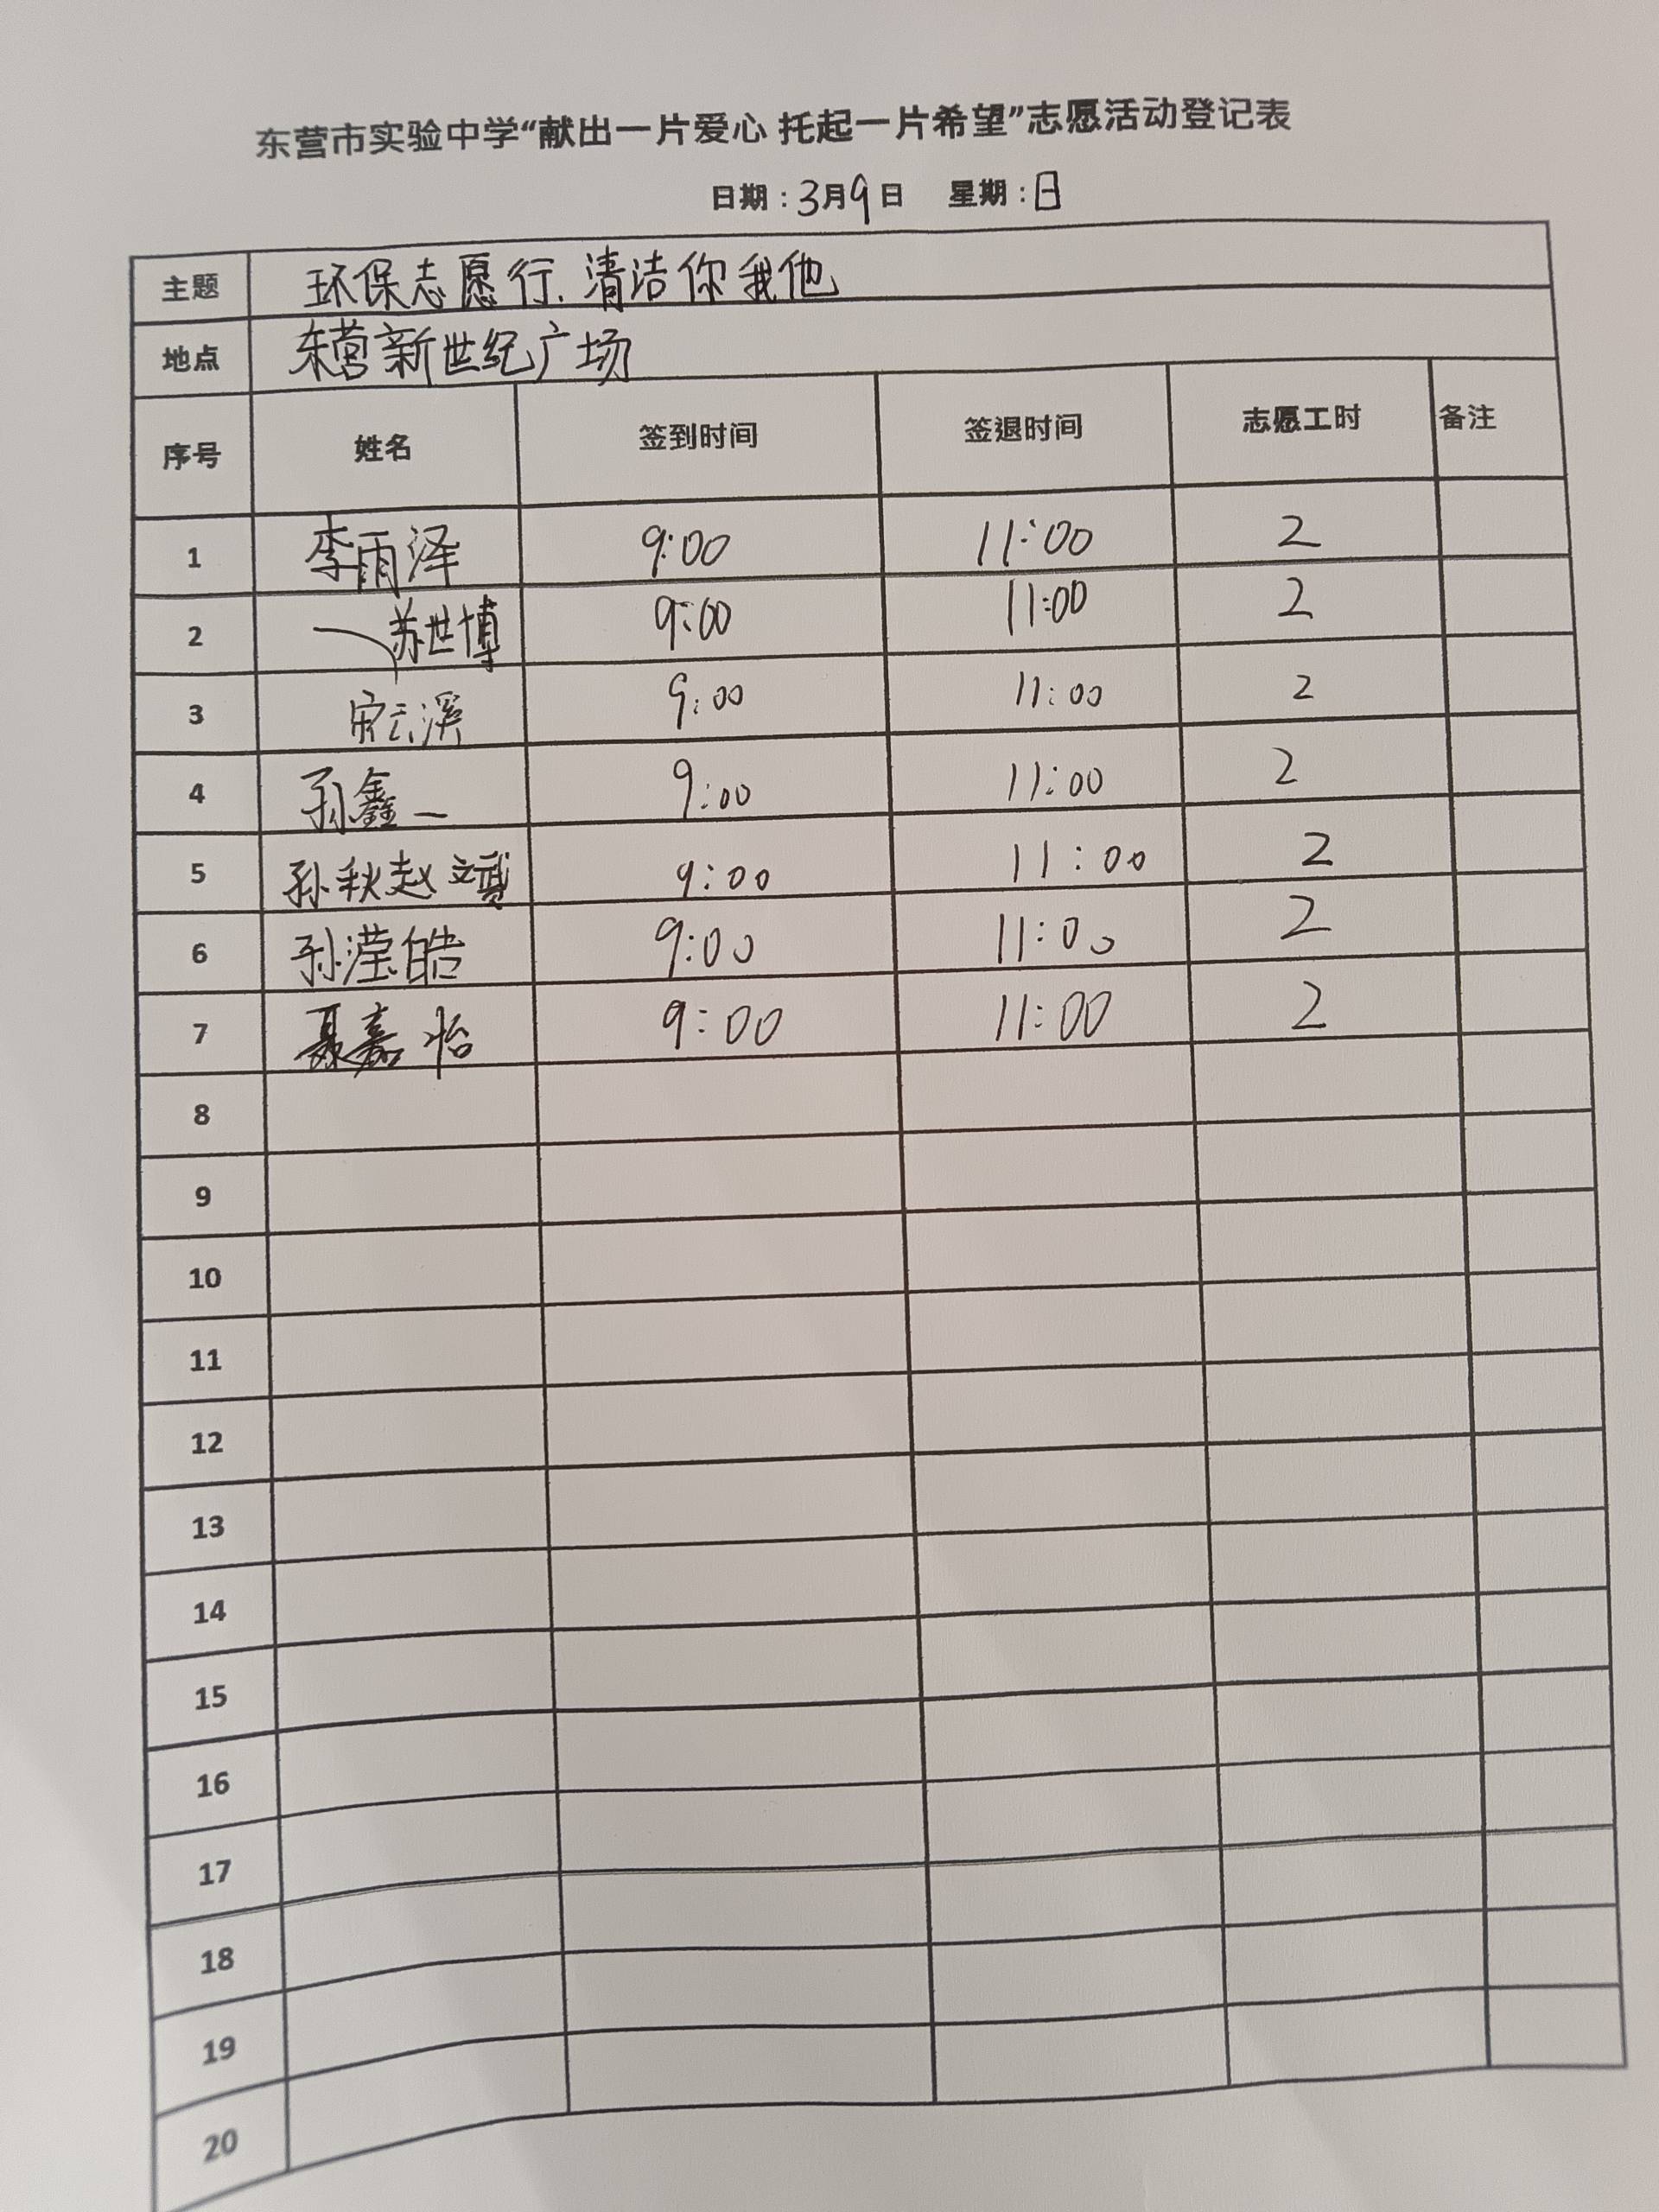 东营市实验中学“献出一片爱心 托起一片希望”志愿活动登记表
日期：3月9日 星期：日
主题 环保志愿行、清洁你我他
地点 东营新世纪广场
序号 姓名 签到时间 签退时间 志愿工时 备注
1 李雨泽 9:00 11:00 2
2 苏世博 9:00 11:00 2
3 宋云溪 9:00 11:00 2
4 孙鑫一 9:00 11:00 2
5 孙秋赵文 9:00 11:00 2
6 孙滢皓 9:00 11:00 2
7 聂嘉怡 9:00 11:00 2
8
9
10
11
12
13
14
15
16
17
18
19
20